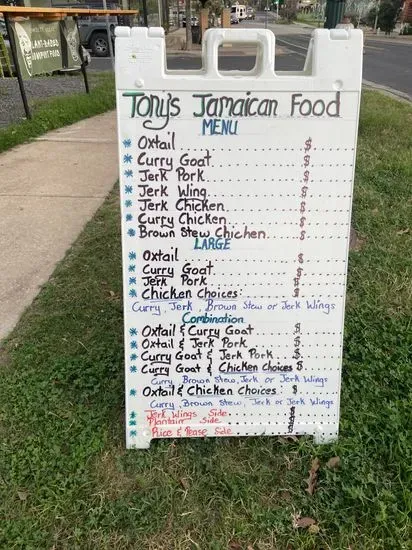 Tony's Jamaican Food
MENU
* Oxtail $
* Curry Goat $
* Jerk Pork $
* Jerk Wing $
* Jerk Chicken $
* Curry Chicken $
* Brown Stew Chichen $
LARGE
* Oxtail $
* Curry Goat $
* Jerk Pork $
* Chicken Choices: $
Curry, Jerk, Brown Stew or Jerk Wings
Combination
* Oxtail & Curry Goat $
* Oxtail & Jerk Pork $
* Curry Goat & Jerk Pork $
* Curry Goat & Chicken Choices $
Curry, Brown Stew, Jerk or Jerk Wings
* Oxtail & Chicken Choices: $
Curry, Brown Stew, Jerk or Jerk Wings
* Jerk Wings Side $
* Plantain Side $
* Rice & Pease Side $